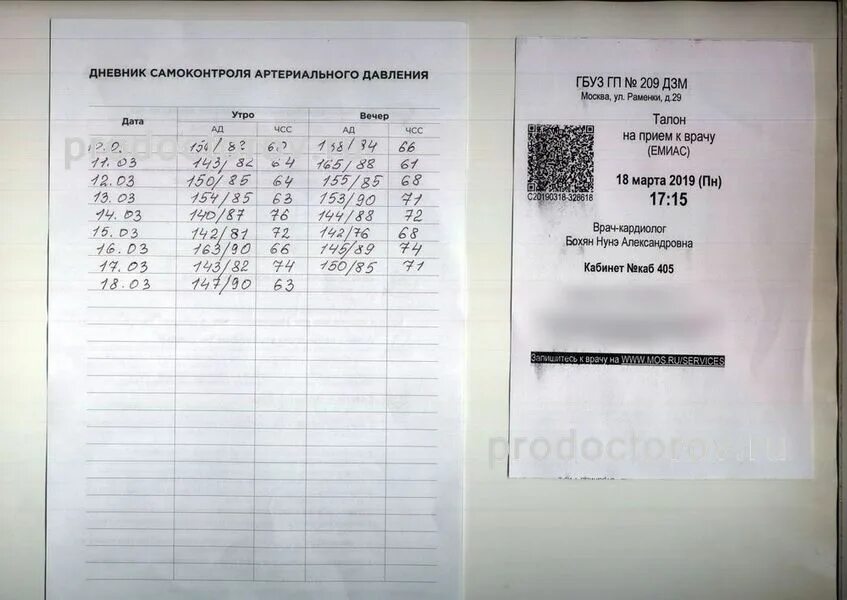 ДНЕВНИК САМОКОНТРОЛЯ АРТЕРИАЛЬНОГО ДАВЛЕНИЯ
Дата Утро Вечер
АД ЧСС АД ЧСС
66
11.03 143/82 64 165/88 61
12.03 150/85 64 155/85 68
13.03 154/85 63 153/90 71
14.03 140/87 76 144/88 72
15.03 142/81 72 142/76 68
16.03 163/90 66 145/89 74
17.03 143/82 74 150/85 71
18.03 147/90 63
ГБУЗ ГП № 209 ДЗМ
Москва, ул. Раменки, д.29
Талон
на прием к врачу
(ЕМИАС)
С20190318-328618
18 марта 2019 (Пн)
17:15
Врач-кардиолог
Бохян Нунэ Александровна
Кабинет №каб 405
Запишитесь к врачу на WWW.MOS.RU/SERVICES
prodoctorov.ru